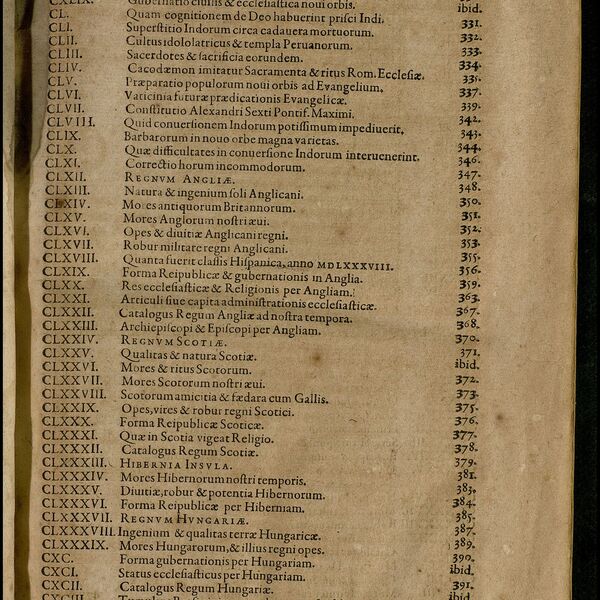 CXLIX. Gubernatio ciuilis & ecclesiastica noui orbis. ibid.
CL. Quam cognitionem de Deo habuerint prisci Indi. 331.
CLI. Superstitio Indorum circa cadauera mortuorum. 332.
CLII. Cultus idololatricus & templa Peruanorum. 333.
CLIII. Sacerdotes & sacrificia eorundem. 334.
CLIV. Cacodæmon imitatur Sacramenta & ritus Rom. Ecclesiæ. 335.
CLV. Præparatio populorum noui orbis ad Euangelium. 337.
CLVI. Vaticinia futuræ prædicationis Euangelicæ. 339.
CLVII. Constitutio Alexandri Sexti Pontif. Maximi. 342.
CLVIII. Quid conuersionem Indorum potissimum impediuerit. 343.
CLIX. Barbarorum in nouo orbe magna varietas. 344.
CLX. Quæ difficultates in conuersione Indorum interuenerint. 346.
CLXI. Correctio horum incommodorum. 347.
CLXII. REGNVM ANGLIÆ. 348.
CLXIII. Natura & ingenium soli Anglicani. 350.
CLXIV. Mores antiquorum Britannorum. 351.
CLXV. Mores Anglorum nostri æui. 352.
CLXVI. Opes & diuitiæ Anglicani regni. 353.
CLXVII. Robur militare regni Anglicani. 355.
CLXVIII. Quanta fuerit classis Hispanica, anno MDLXXXVIII. 356.
CLXIX. Forma Reipublicæ & gubernationis in Anglia. 359.
CLXX. Res ecclesiasticæ & Religionis per Angliam. 363.
CLXXI. Articuli siue capita administrationis ecclesiasticæ. 367.
CLXXII. Catalogus Regum Angliæ ad nostra tempora. 368.
CLXXIII. Archiepiscopi & Episcopi per Angliam. 370.
CLXXIV. REGNVM SCOTIÆ. 371.
CLXXV. Qualitas & natura Scotiæ. ibid.
CLXXVI. Mores & ritus Scotorum. 372.
CLXXVII. Mores Scotorum nostri æui. 373.
CLXXVIII. Scotorum amicitia & fædara cum Gallis. 375.
CLXXIX. Opes, vires & robur regni Scotici. 376.
CLXXX. Forma Reipublicæ Scoticæ. 377.
CLXXXI. Quæ in Scotia vigeat Religio. 378.
CLXXXII. Catalogus Regum Scotiæ. 379.
CLXXXIII. HIBERNIA INSVLA. 381.
CLXXXIV. Mores Hibernorum nostri temporis. 383.
CLXXXV. Diuitiæ, robur & potentia Hibernorum. 384.
CLXXXVI. Forma Reipublicæ per Hiberniam. 385.
CLXXXVII. REGNVM HUNGARIÆ. 387.
CLXXXVIII. Ingenium & qualitas terræ Hungaricæ. 389.
CLXXXIX. Mores Hungarorum, & illius regni opes. 390.
CXC. Forma gubernationis per Hungariam. ibid.
CXCI. Status ecclesiasticus per Hungariam. 391.
CXCII. Catalogus Regum Hungariæ.
CXCIII.